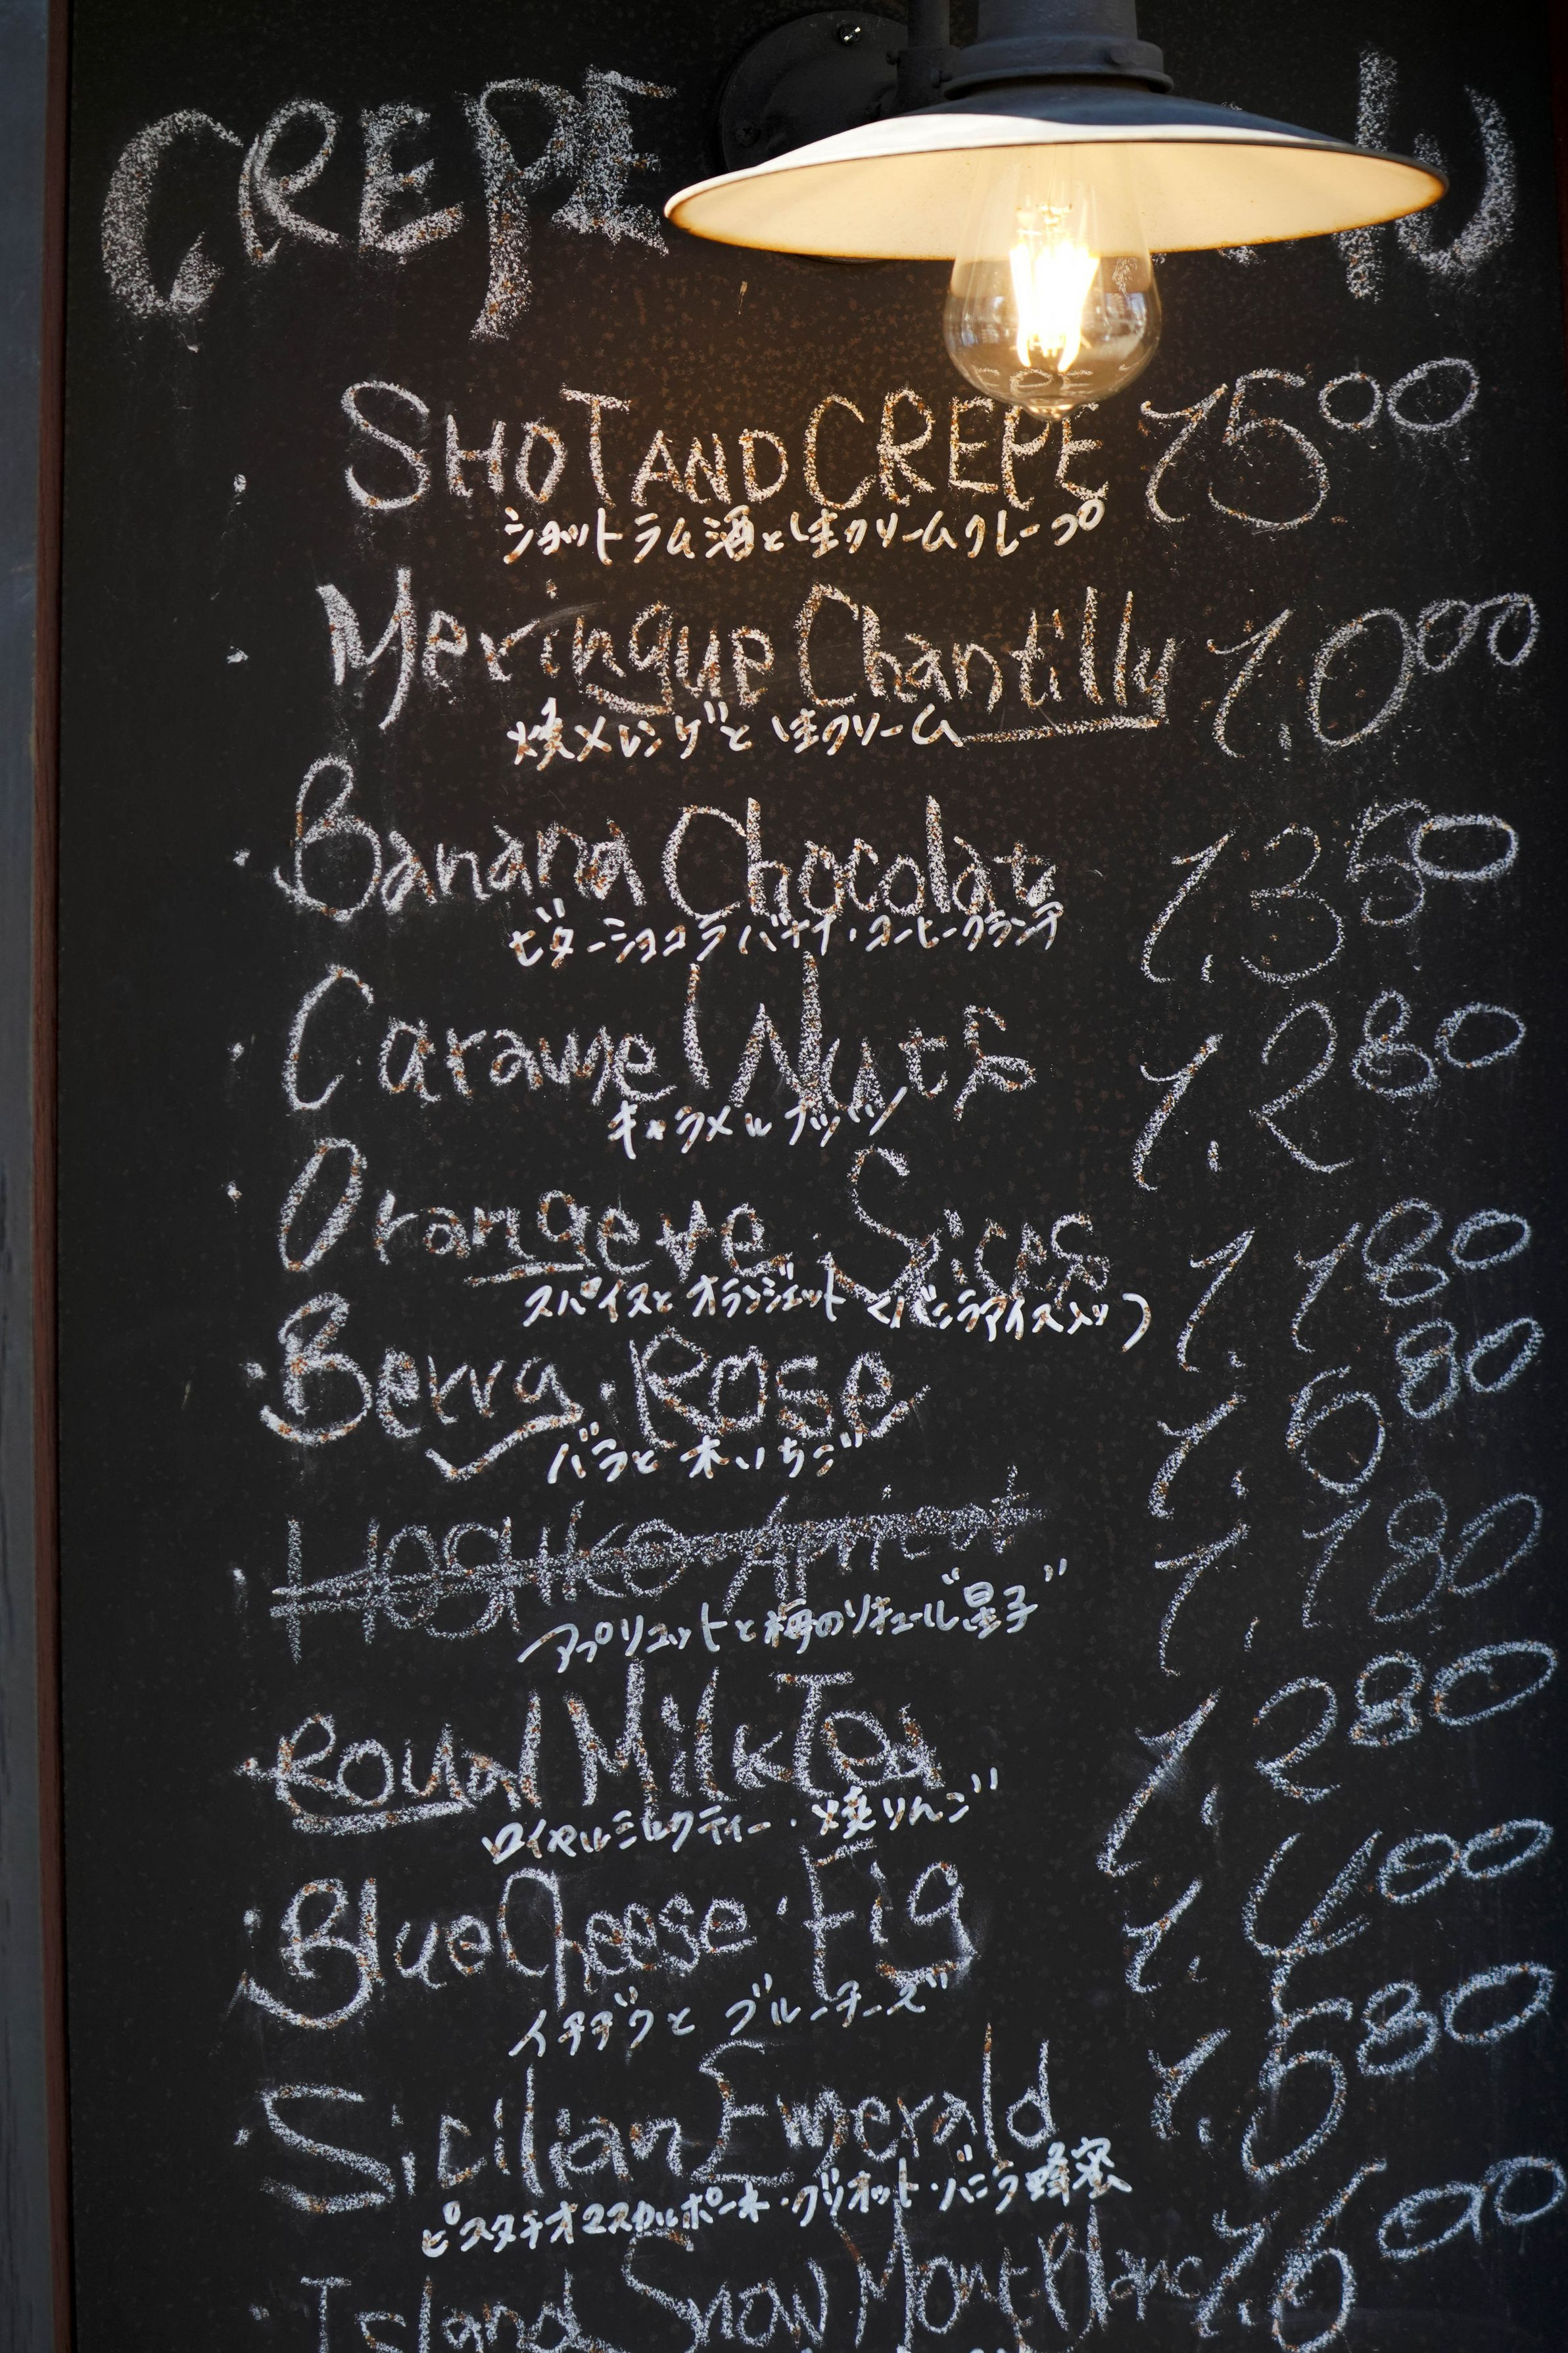 CREPE
SHOT AND CREPE 1500
ショットラム酒と生クリームクレープ
Meringue Chantilly 1,000
焼メレンゲと生クリーム
Banana Chocolat 1,350
ビターショコラバナナ・コーヒークランチ
Caramel Nuts 1,280
キャラメルナッツ
Orange et Spices 1,180
スパイスとオランジェット(バニラアイス入り)
Berry・Rose 1,680
バラと木いちご
Hoshiko Apricot 1,180
アプリコットと梅のリキュール"星子"
Royal Milk Tea 1,280
ロイヤルミルクティー・焼りんご
Blue Cheese・Fig 1,400
イチヂクとブルーチーズ
Sicilian Emerald 1,580
ピスタチオマスカルポーネ・グリオット・バニラ蜂蜜
Island Snow Mont Blanc 1,600